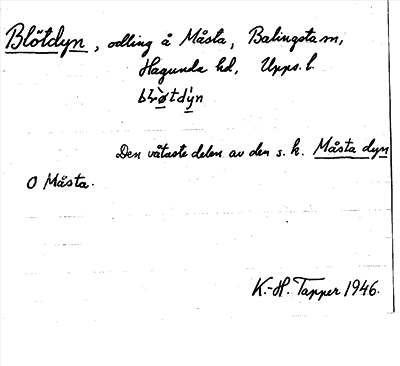 Blötdyn, odling å Måsta, Balingsta sn,
Hagunda hd, Upps. l.
brø̀tdy̆n
Den våtaste delen av den s. k. Måsta dyn
O Måsta.
K.-H. Tapper 1946.